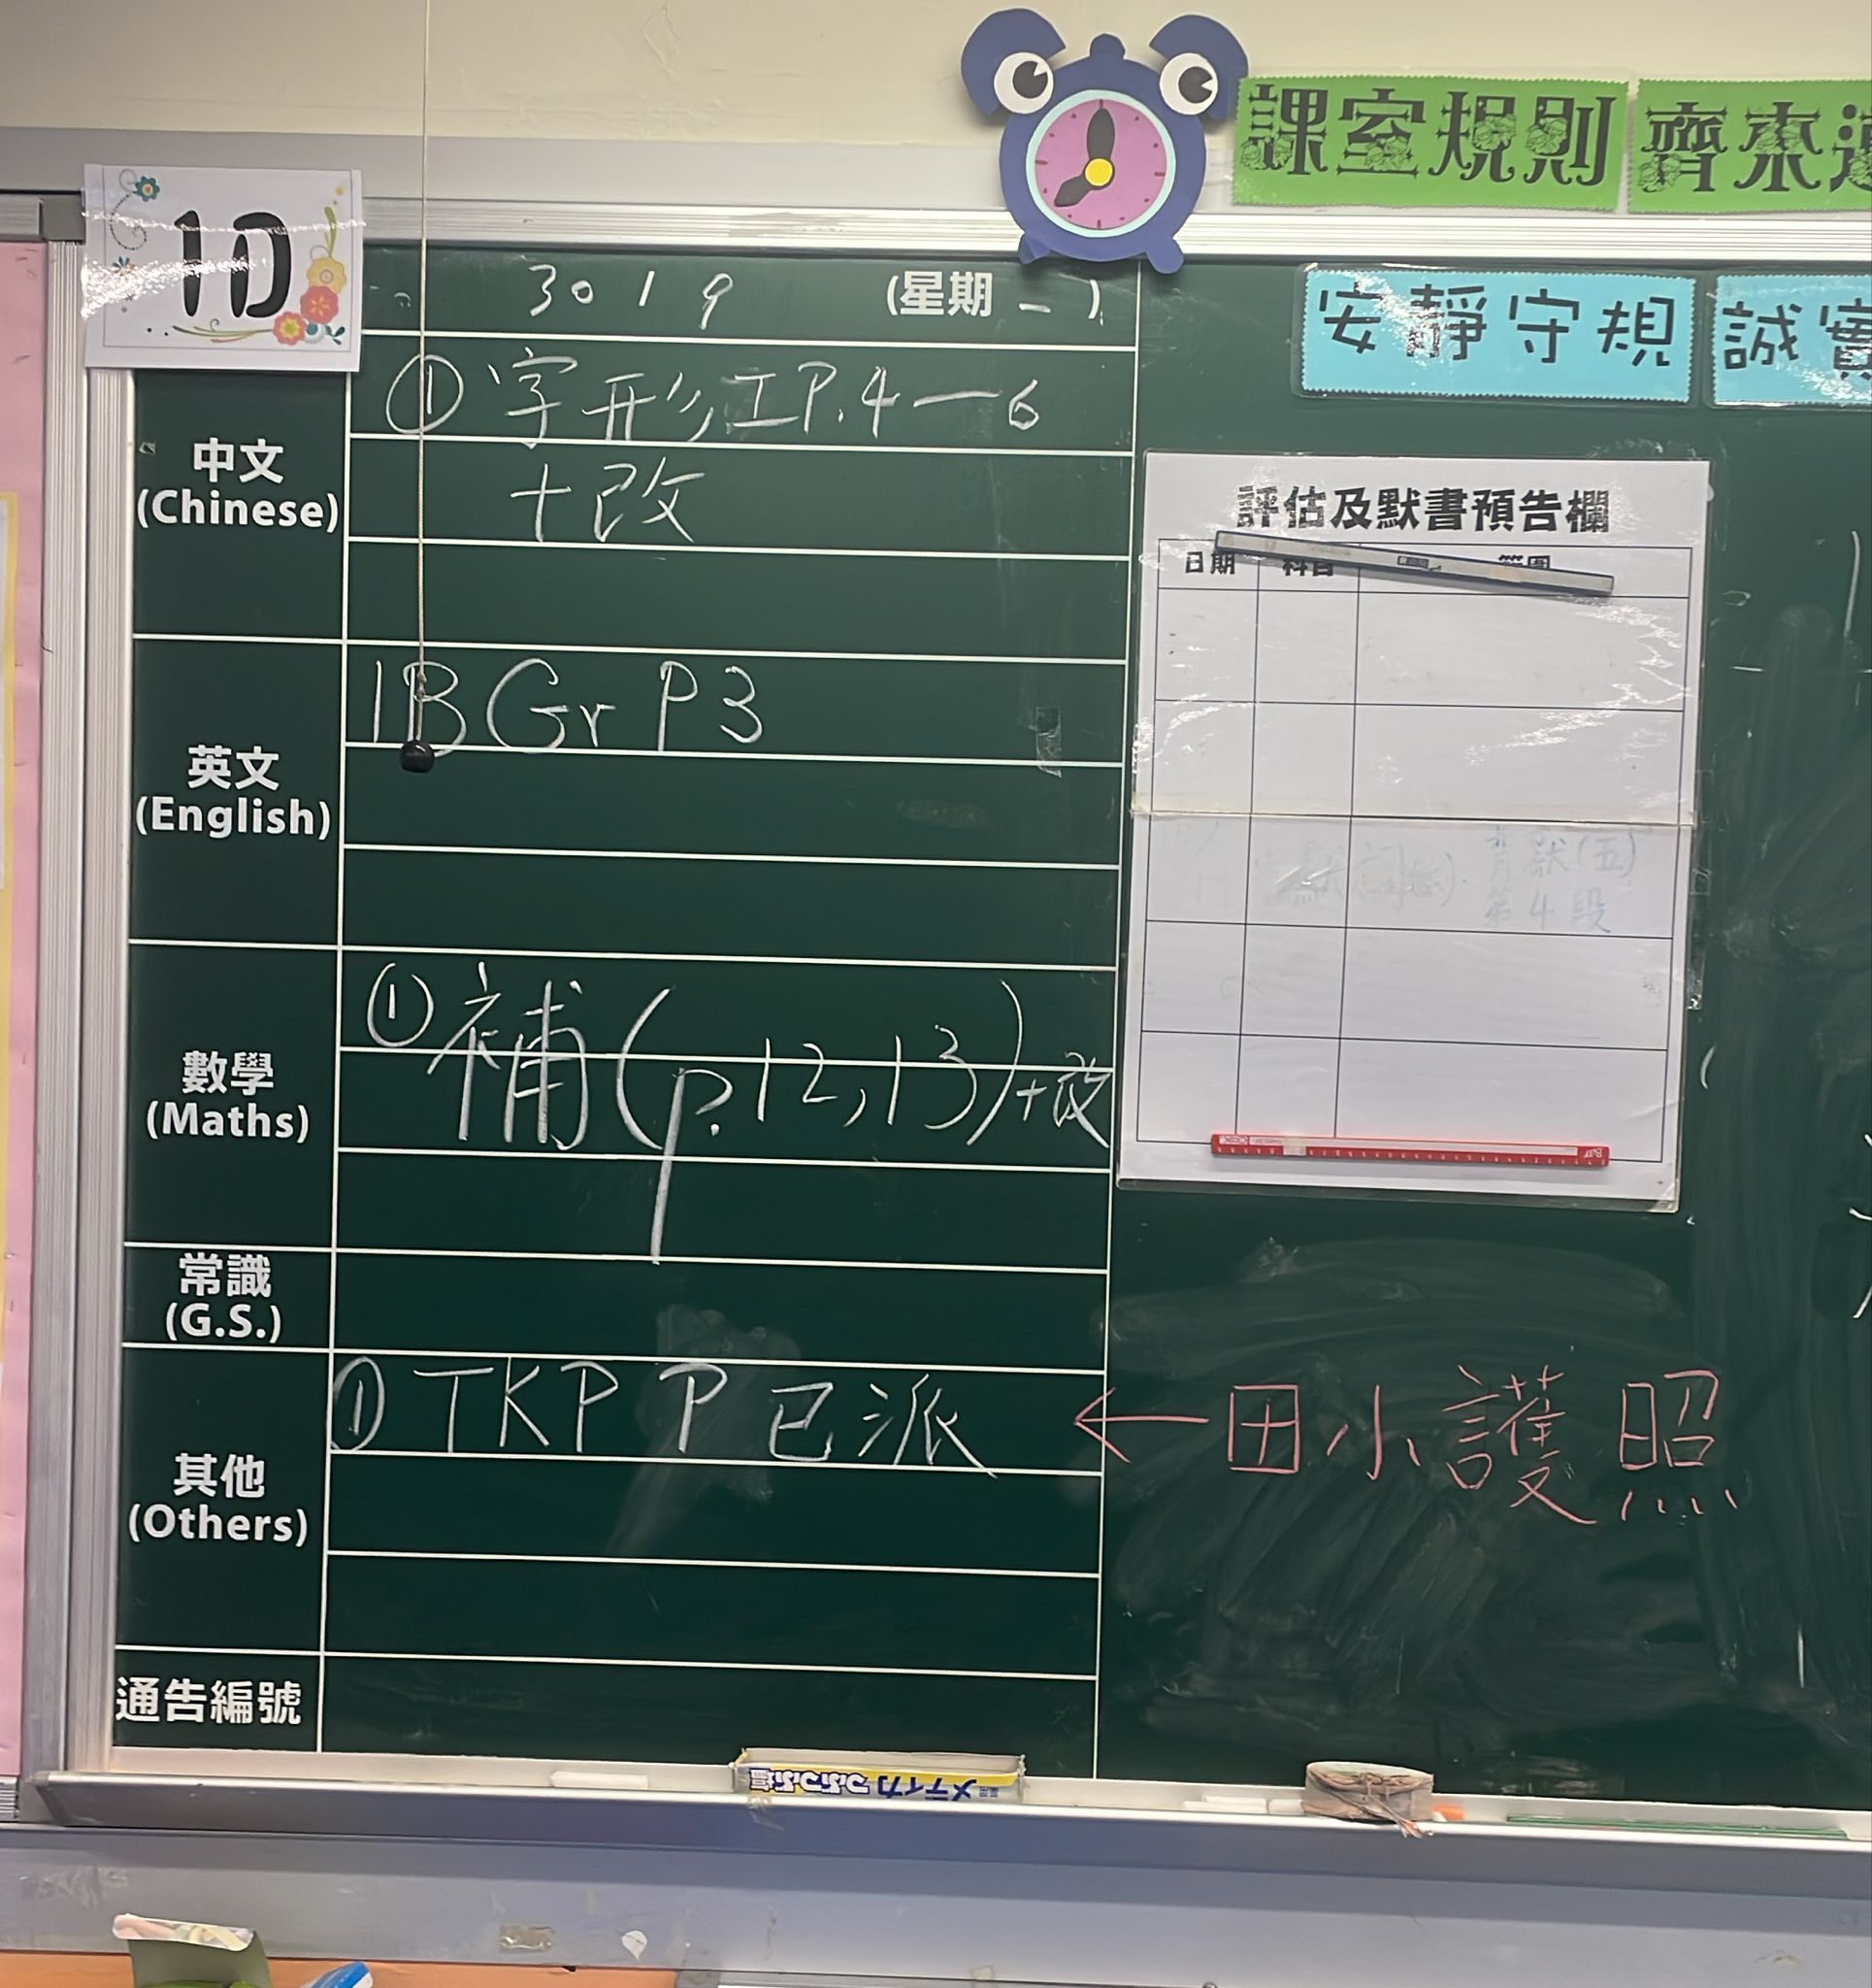 課室規則 齊來
1D
30 1 9 (星期一)
安靜守規 誠實
中文
(Chinese)
① 字形工P.4—6
+改
評估及默書預告欄
日期 科目 範圍
英文
(English)
1B Gr P3
背默(五)
第4段
數學
(Maths)
① 補(p.12,13)+改
常識
(G.S.)
其他
(Others)
① TKP P 已派 ← 田小護照
通告編號
メディカつぶつぶ塩